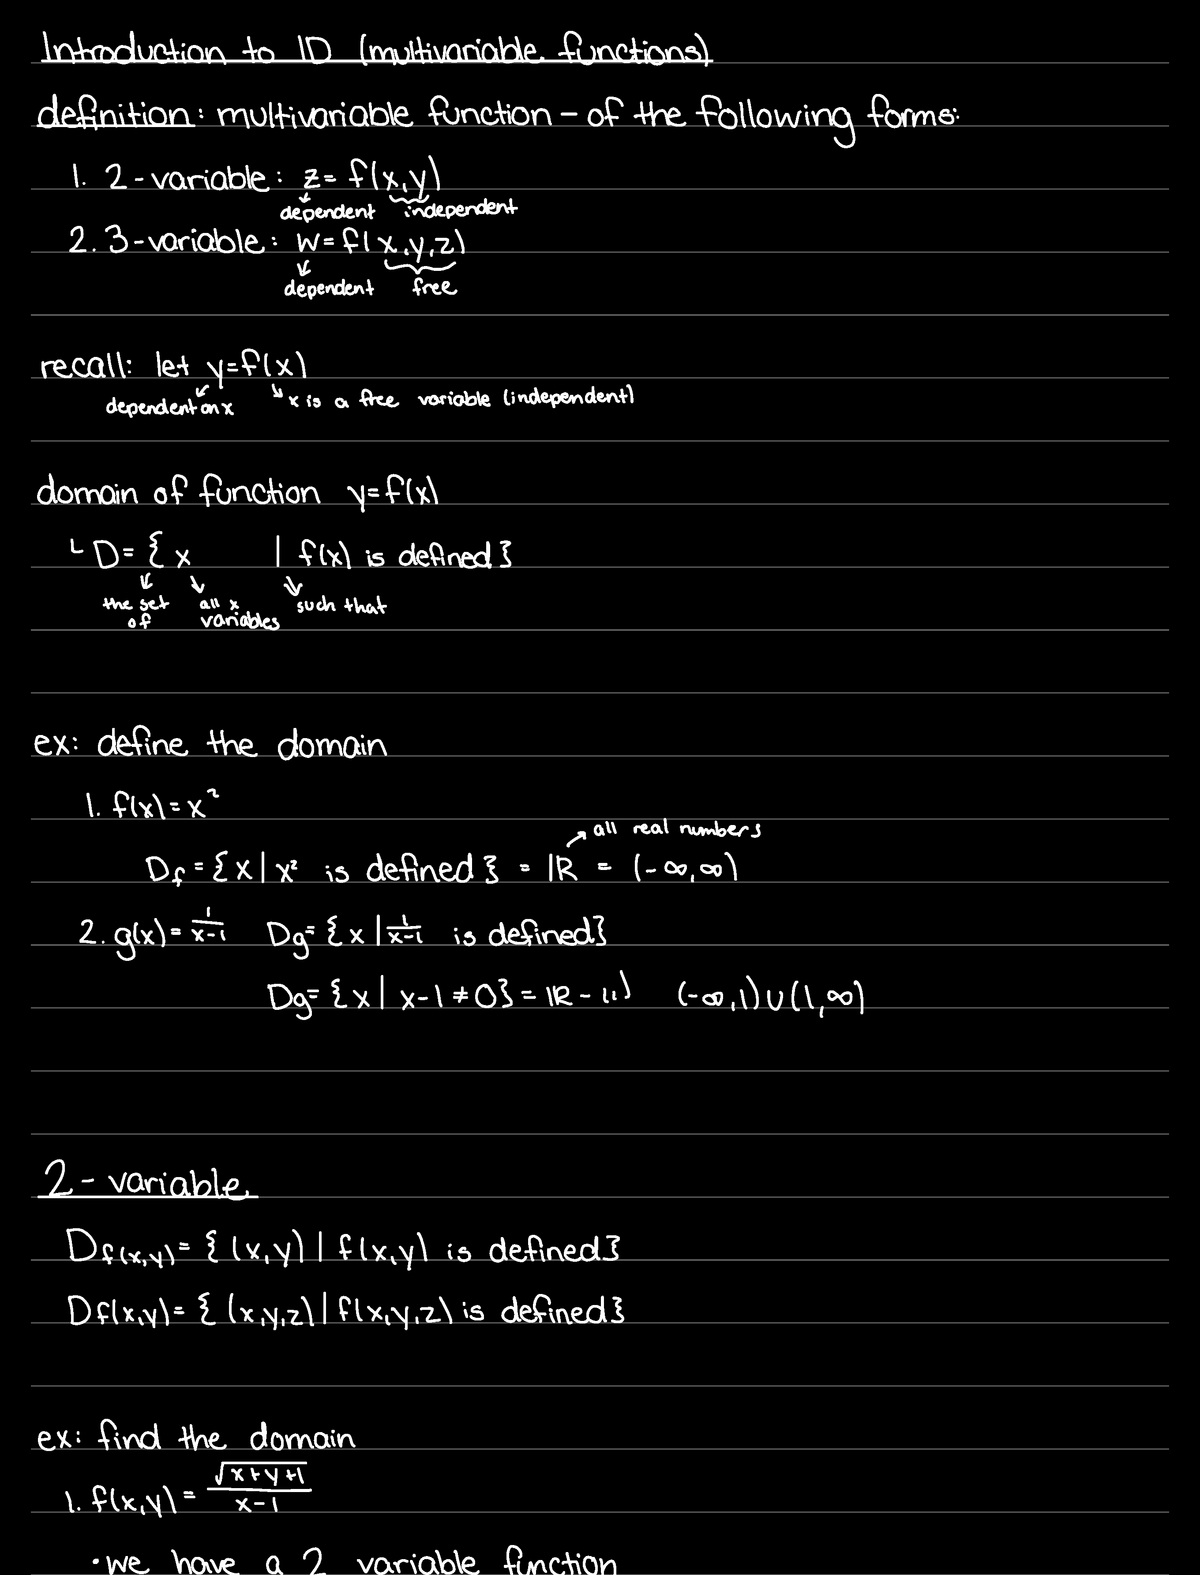 Introduction to 1D (multivariable functions)
definition: multivariable function – of the following forms:
1. 2-variable: z = f(x,y)
dependent independent
2. 3-variable: w = f(x,y,z)
dependent free
recall: let y=f(x)
dependent on x x is a free variable (independent)
domain of function y=f(x)
D = { x | f(x) is defined }
the set of all x variables such that
ex: define the domain
1. f(x) = x²
all real numbers
D_f = { x | x² is defined } = ℝ = (-∞,∞)
2. g(x) = 1/(x-1) Dg = { x | 1/(x-1) is defined }
Dg = { x | x-1 ≠ 0 } = ℝ - (-∞,1)∪(1,∞)
2-variable
D_f(x,y) = { (x,y) | f(x,y) is defined }
Df(x,y) = { (x,y,z) | f(x,y,z) is defined }
ex: find the domain
1. f(x,y) = √(x+y+1)/(x-1)
• we have a 2 variable function